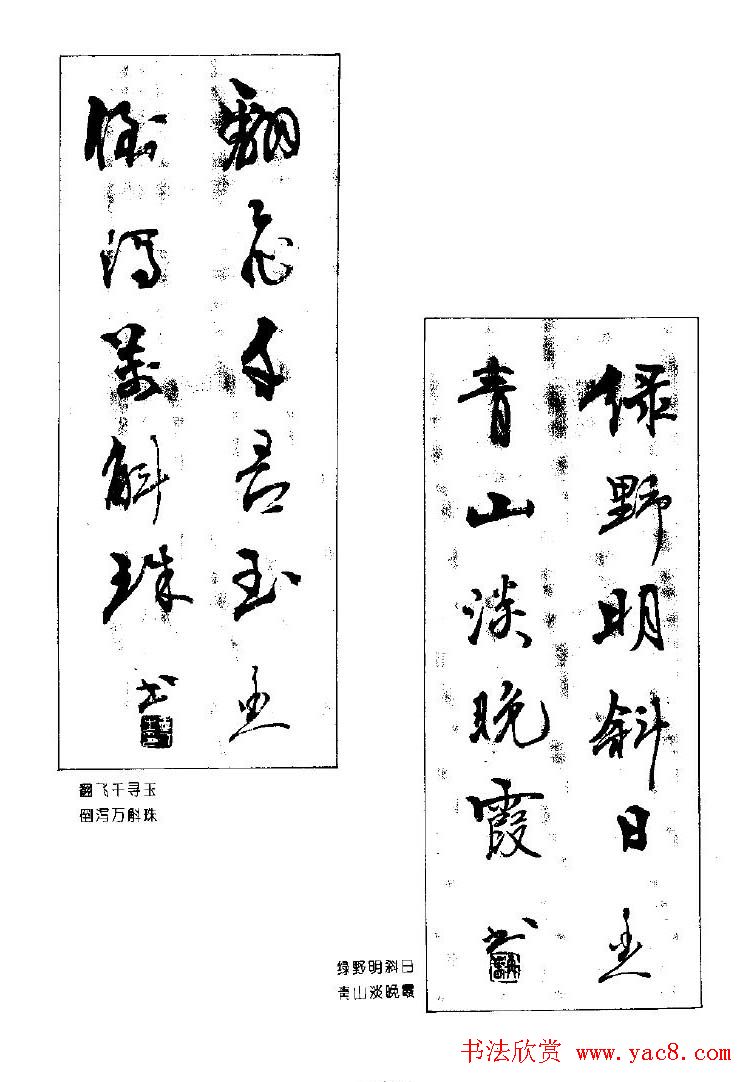 翻飛千尋玉
倒瀉萬斛珠
书
翻飞千寻玉
倒泻万斛珠
绿野明斜日
青山淡晚霞
书
绿野明斜日
青山淡晚霞
书法欣赏 www.yac8.com